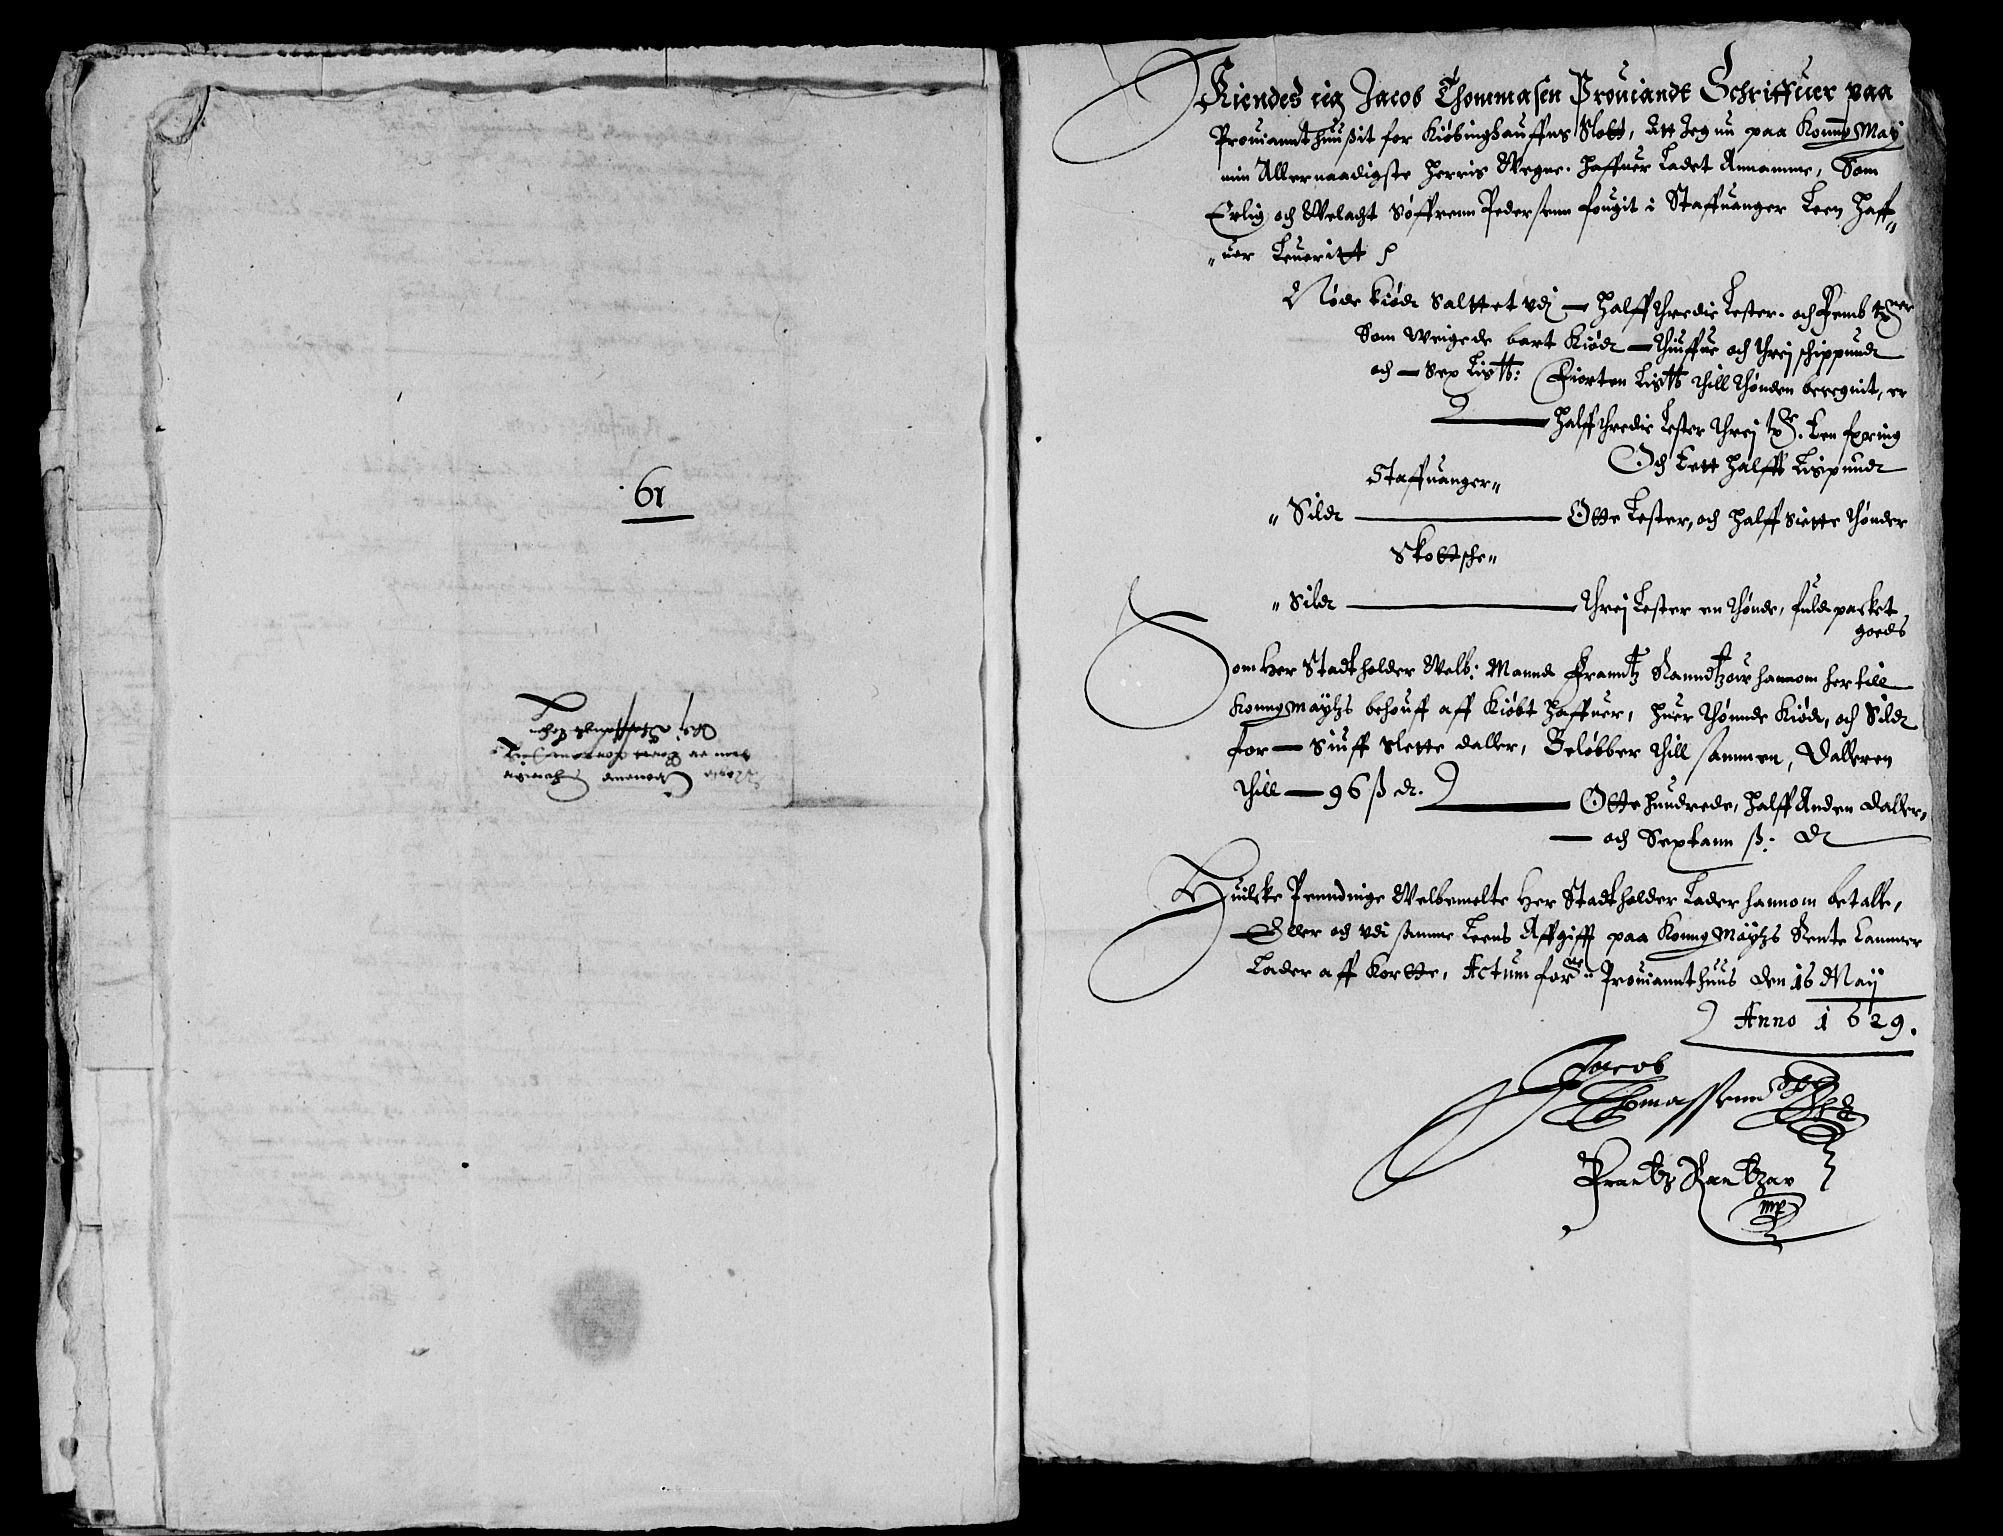 61
Kiendes ieg Jacob Thommasen Prouiandt Schriffuer paa
Prouianndthuußit for Kiøbinghauffns Slott, Att Jeg nu paa Konng May
min Allernaadigste Herris Wegne. Haffuer Ladet Annamme, Som
Erlig och Welacht Søffrenn Pedersenn fougit i Staffuanger Leen Haff„
„uer Leueritt
Nøde Kiødt Salttet vdj — Halffthredie Lester. och Femb tr
Som Weigede bart Kiødt — Thiuffue och threj schippundt
och — Sex Lis℔: Fiorten Lis℔ thill thønden beregnit, er
Halffthredie Lester threj tr. Een fxering
Och Lett Halfft Lispundt
Staffuanger„
„ Sildt — Otte Lester, och Halff Siette thønder
Skottsche„
„ Sildt — threj Lester en thønde, fuldt packet
goeds
Som Her Stadtholder Welb: Mannd Franndtz Ranndtzow hannom her till
Konng Maytz behouff aff Kiøbt Haffuer, Huer thønnde Kiødt, och Sildt
for — Siuff Slette daller, Beløbber thill sammen, Dalleren
thill — 96 ß dt. Otte hundrede, Halff Anden daller„
— och Sextann ß: dt
Huilcke Penndinge Welbemelte Her Stadtholder Lader hannom betalle,
Eller och vdi samme Leens Affgifft paa Konng Maytz Rente Cammer
Lader aff Kortte, Actum forne Prouianndthuus den 16 Maij
Anno 1629.
Jacob
Thomassenn
Frantz Rantzav
mp